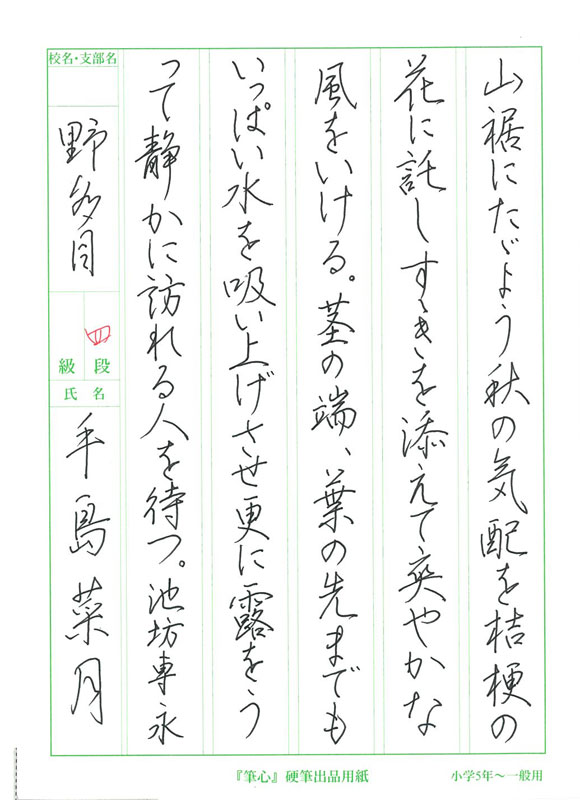 山裾にたゞよう秋の気配を桔梗の
花に託しすゝきを添えて爽やかな
風をいける。茎の端、葉の先までも
いっぱい水を吸い上げさせ更に露をう
って静かに訪れる人を待つ。池坊専永
校名・支部名
野多目
四
級 段
氏 名
手島菜月
『筆心』硬筆出品用紙
小学5年〜一般用